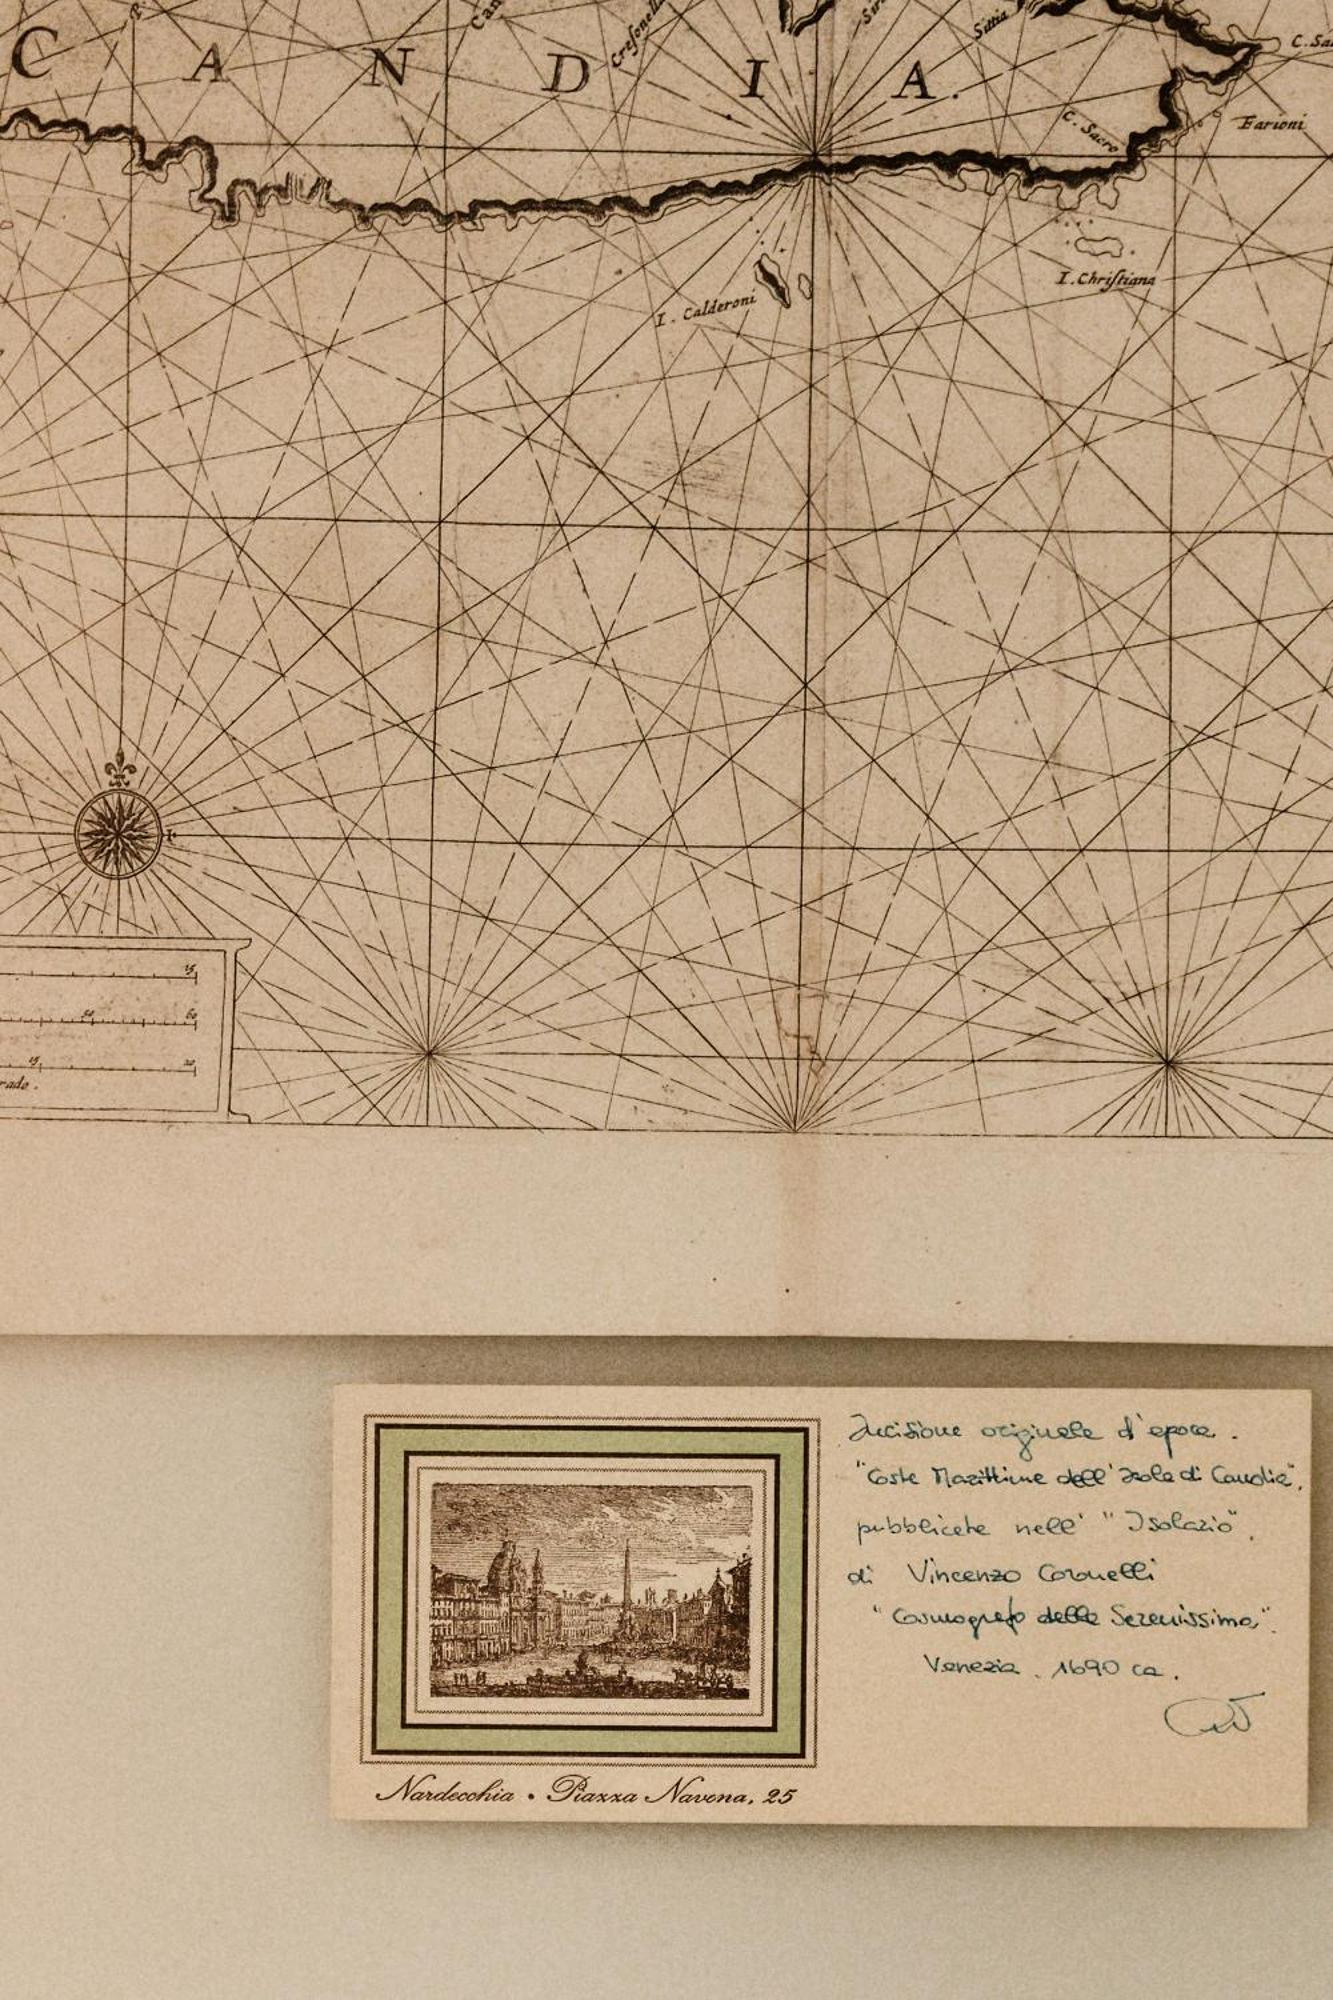 C A N D I A.
Sittia
C. Sacro
Farioni
I. Calderoni
I. Christiana
15
50 60
15 20
Incisione originale d'epoca.
"Coste Marittime dell'Isola di Candia",
pubblicate nell' "Isolario",
di Vincenzo Coronelli
"Cosmografo della Serenissima".
Venezia. 1690 ca.
Nardecchia • Piazza Navona, 25